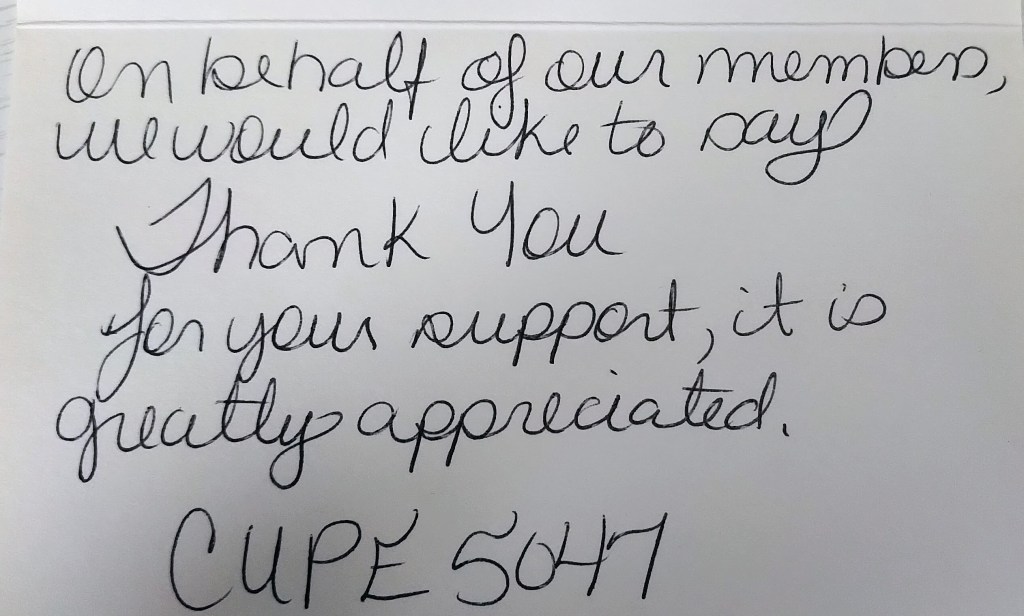 On behalf of our members,
we would like to say
Thank You
for your support, it is
greatly appreciated.
CUPE 5047